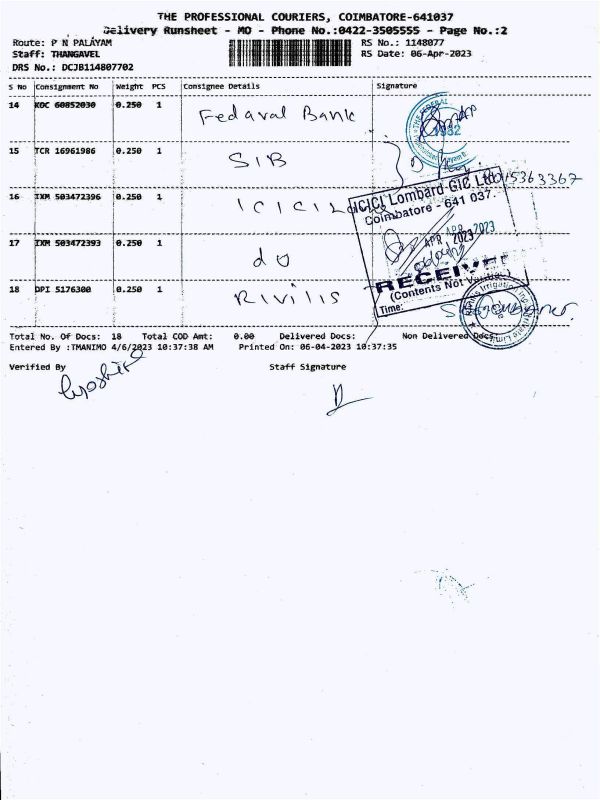 THE PROFESSIONAL COURIERS, COIMBATORE-641037
Delivery Runsheet - MO - Phone No.:0422-3505555 - Page No.:2
Route: P N PALAYAM RS No.: 1148077
Staff: THANGAVEL RS Date: 06-Apr-2023
DRS No.: DCJB114807702
S No Consignment No Weight PCS Consignee Details Signature
14 KOC 60852030 0.250 1 Fedaral Bank
15 TCR 16961986 0.250 1 SIB
16 IXM 503472396 0.250 1 ICICI
ICICI Lombard GIC Ltd
Coimbatore - 641 037.
17 IXM 503472393 0.250 1 do
APR 2023
RECEIVED
18 DPI 5176300 0.250 1 Rivilis
(Contents Not Verified)
Time:
Total No. Of Docs: 18 Total COD Amt: 0.00 Delivered Docs: Non Delivered Docs:
Entered By :TMANIMO 4/6/2023 10:37:38 AM Printed On: 06-04-2023 10:37:35
Verified By Staff Signature